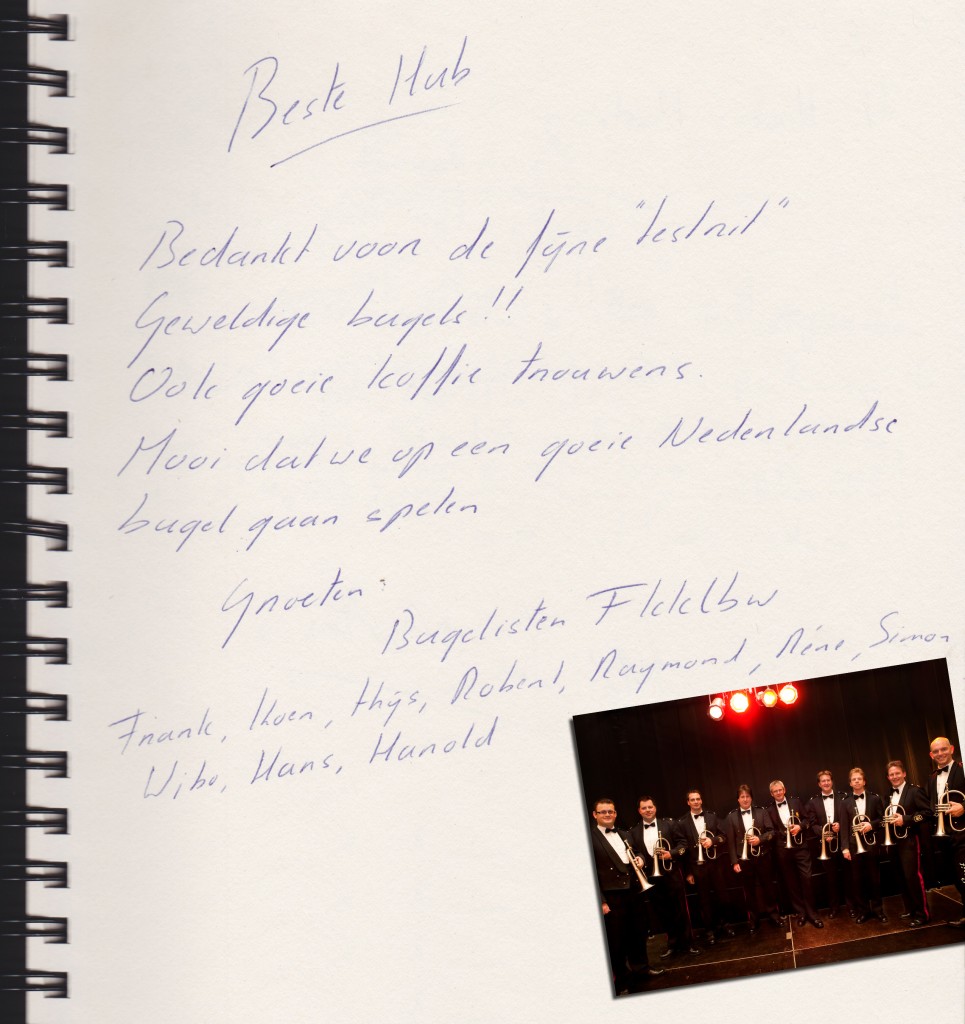 Beste Hub
Bedankt voor de fijne "testrit"
Geweldige bugels!!
Ook goeie koffie trouwens.
Mooi dat we op een goeie Nederlandse
bugel gaan spelen
Groeten:
Bugelisten FKKLbw
Frank, Koen, Thijs, Robert, Raymond, Réne, Simon
Wibo, Hans, Harold